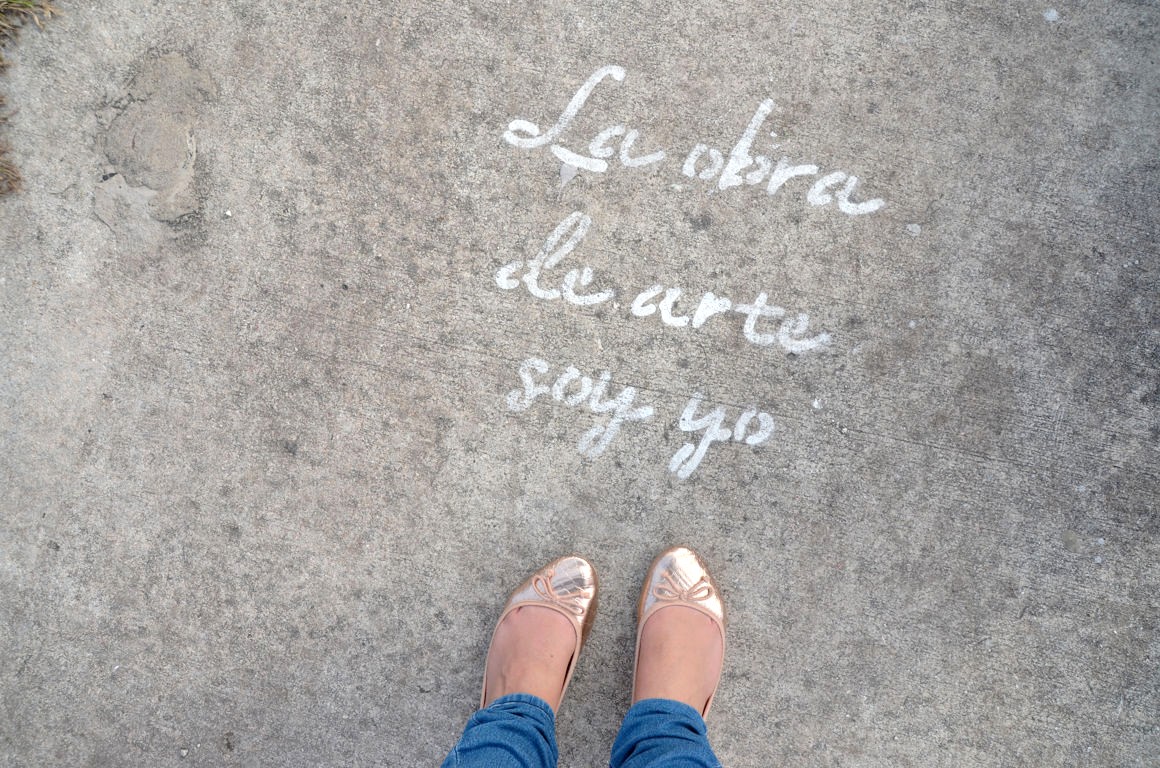 La obra
de arte
soy yo